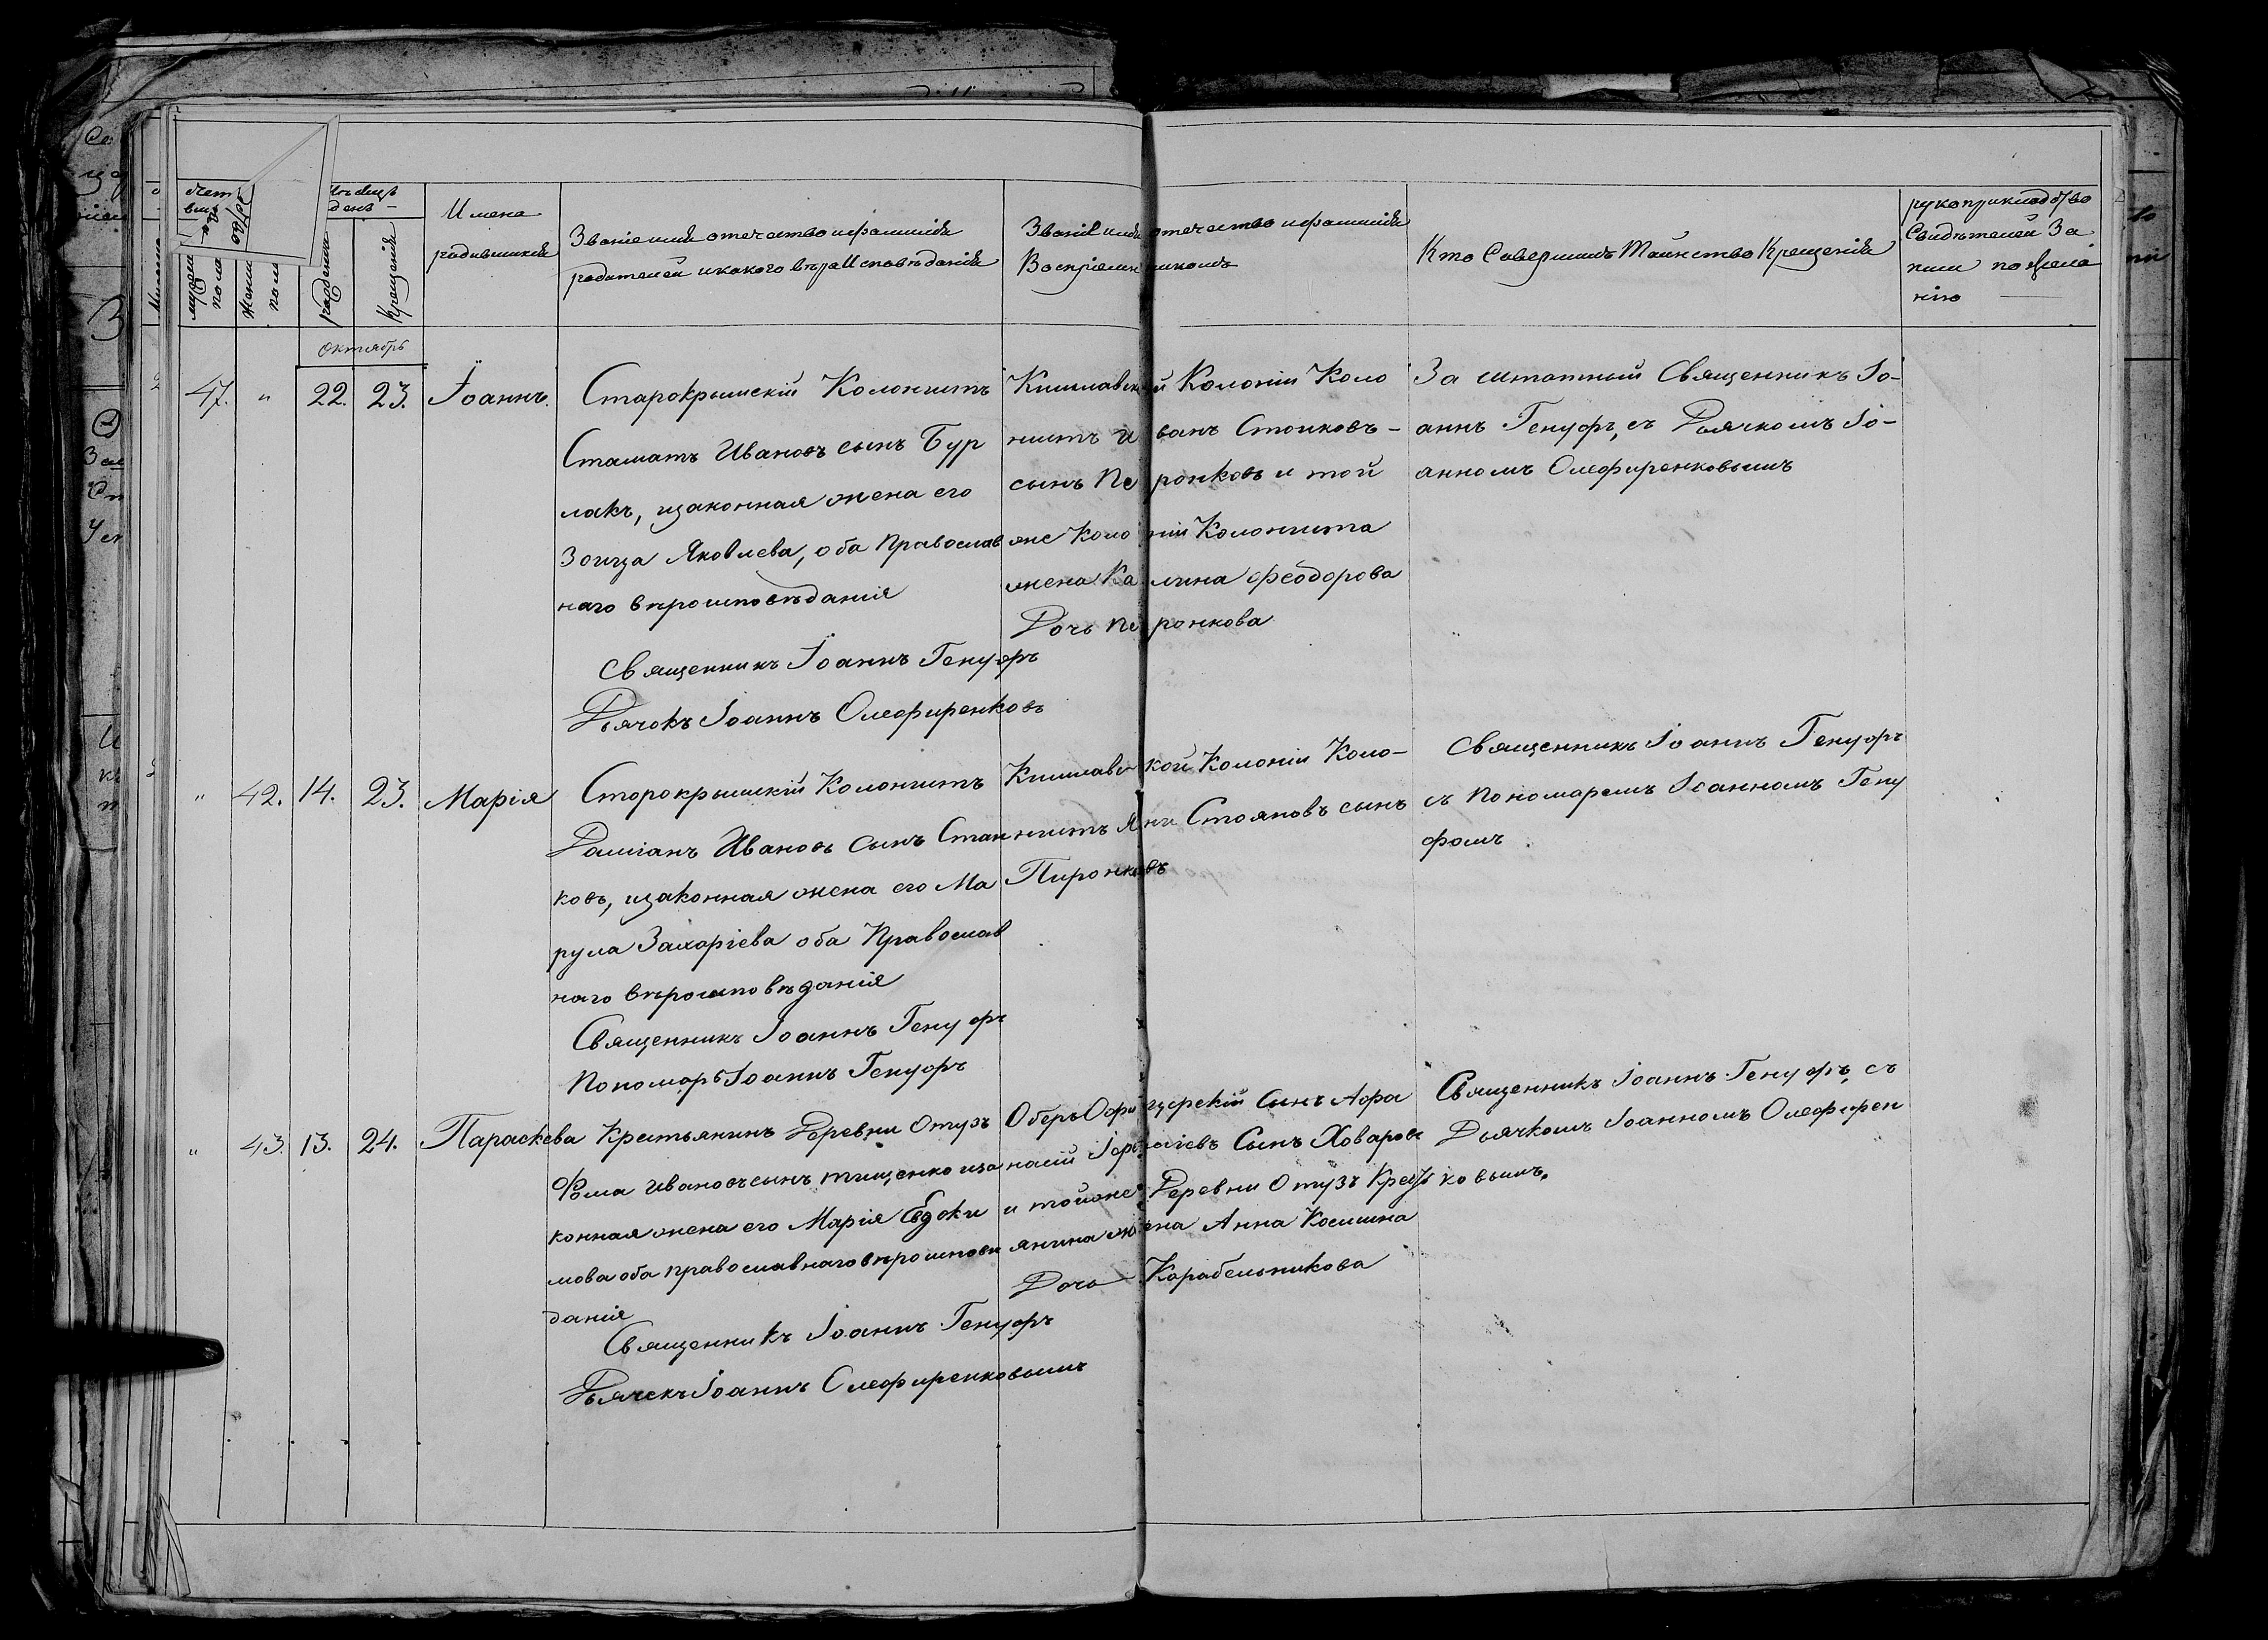 Имена
родившихся
Званіе имя отечество и фамилія
родителей и какого вѣроисповѣданія
Званіе имя отечество и фамилія
Воспріемниковъ
Кто Совершилъ Таинство Крещенія
рукоприкладство
Свидѣтелей За
писи по жела
нію
рожденія
Крещенія
Октябрь
47. " 22. 23. Іоаннъ.
Старокрымскій Колонистъ
Стаматъ Ивановъ сынъ Бур
лакъ, изаконная жена его
Зоица Яковлева, оба Православ
наго вѣроисповѣданія
Священникъ Іоаннъ Генуфъ
Дьячокъ Іоаннъ Олефиренковъ
Кишлавской Колоніи Коло
нистъ Иванъ Стоиковъ -
сынъ Перонковъ и той
же Колоніи Колониста
жена Калина Феодорова
Дочь Перонкова
За штатный Священникъ Іо-
аннъ Генуфъ, съ Дьячкомъ Іо-
анномъ Олефиренковымъ
" 42. 14. 23. Марія
Сторокрымскій Колонистъ
Даміанъ Ивановъ Сынъ Стан
ковъ, изаконная жена его Ма
рула Захаріева оба Православ
наго вѣроисповѣданія
Священникъ Іоаннъ Генуфъ
Пономарь Іоаннъ Генуфъ
Кишлавской Колоніи Коло-
нистъ Яни Стояновъ сынъ
Пиронковъ
Священникъ Іоаннъ Генуфъ
съ Пономаремъ Іоанномъ Гену
фомъ
" 43. 13. 24. Параскева
Крестьянинъ Деревни Отузъ
Фома Ивановъ сынъ Тищенко иза
конная жена его Марія Евдоки
мова оба православнаго вѣроисповѣ
данія
Священникъ Іоаннъ Генуфъ
Дьячекъ Іоаннъ Олефиренковымъ
Оберъ Офицерскій Сынъ Афа
насій Сынъ Ховаровъ
и тойже Деревни Отузъ Крест
янина жена Анна Космина
Дочь Карабельникова
Священникъ Іоаннъ Генуфъ, съ
Дьячкомъ Іоанномъ Олефирен
ковымъ.